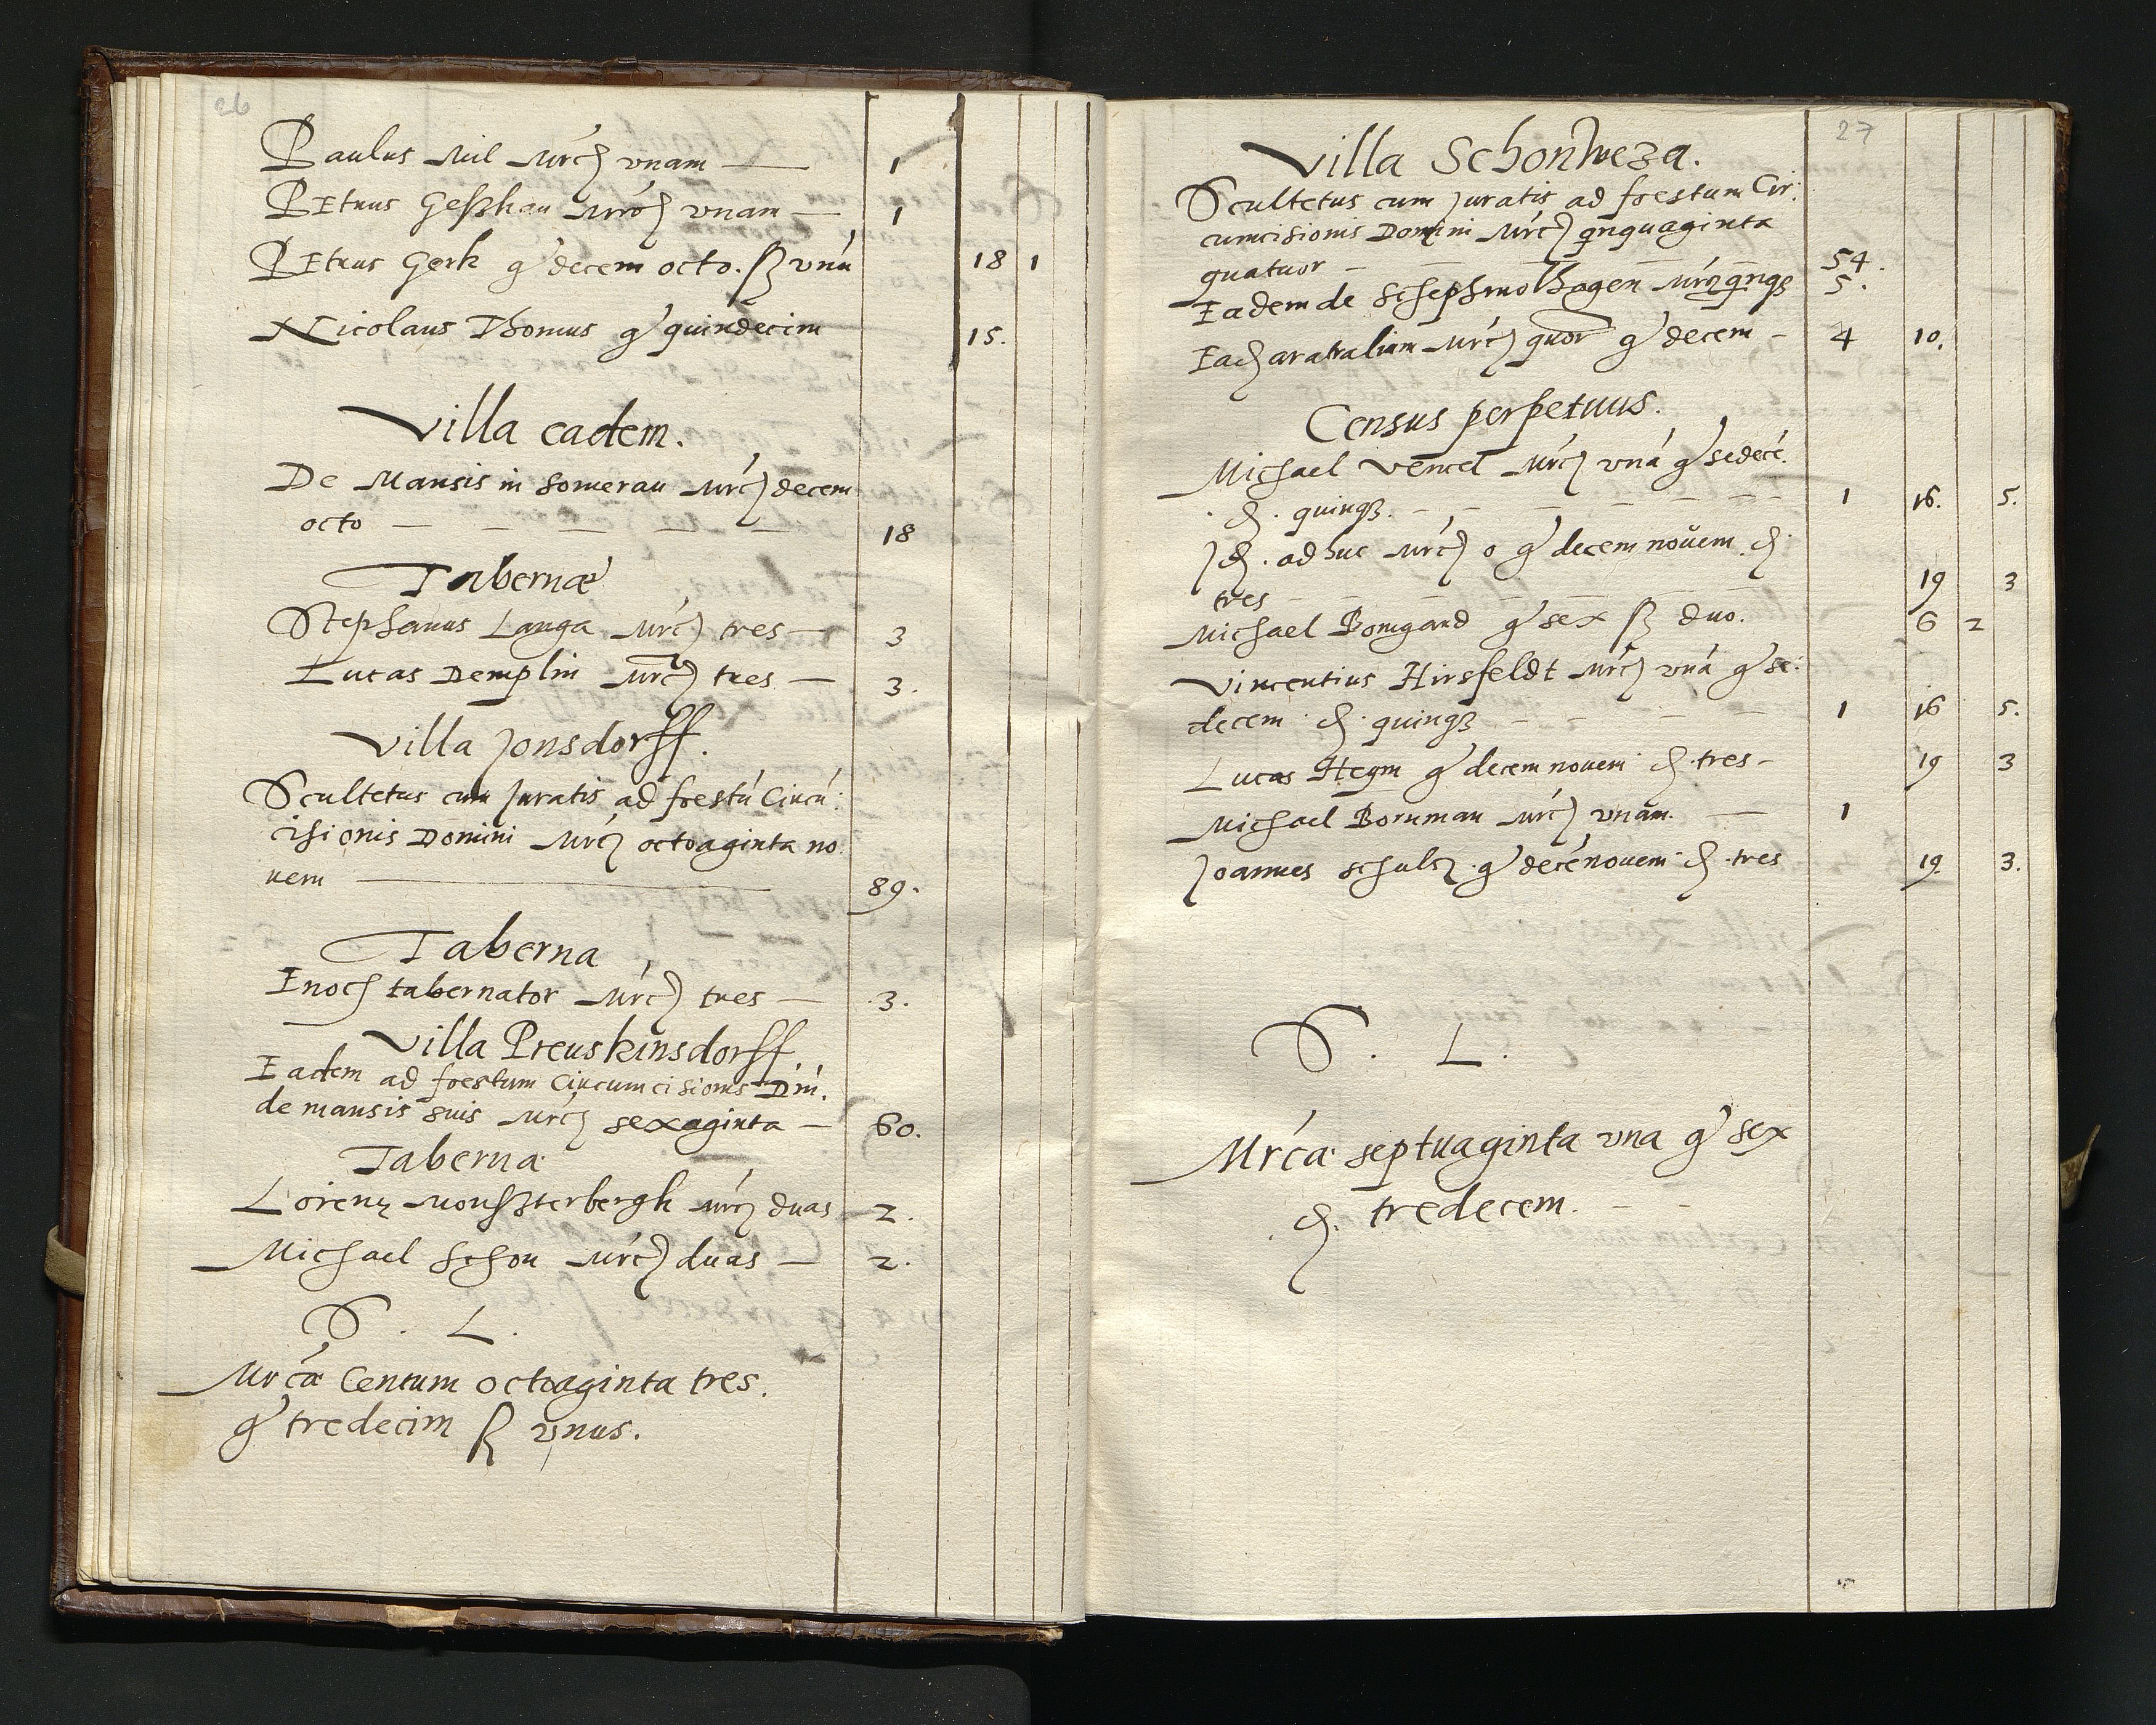 26
Paulus Mil Mrcȝ vnam — 1
Petrus Geßhau Mrcȝ vnam — 1
Petrus Gerk gͬ decem octo. ſʒ vnú 18 1
Nicolaus Thomus gͬ quindecim 15.
Villa eadem.
De Mansis in Somerau Mrcȝ decem
octo — — — — — 18
Tabernæ
Stephanus Langa Mrcȝ tres — 3
Lucas Demplin Mrcȝ tres — 3.
Villa Jonsdorff.
Scultetus cum Juratis ad foestú Circú:
cisionis Domini Mrcȝ octoaginta no:
uem — 89.
Taberna
Enoch tabernator Mrcȝ tres — 3.
Villa Preuskinsdorff
Eadem ad foestum Circumcisionis Dni.
de mansis suis Mrcȝ sexaginta — 60.
Taberna
Lorenz Monsterbergk Mrcȝ duas 2.
Michael Schon Mrcȝ duas — 2.
S. L.
Mrca Centum octoaginta tres.
gͬ tredecim ſʒ vnus.
27
Villa Schonweza.
Scultetus cum Juratis ad foestum Cir:
cumcisionis Domini Mrcȝ qnquaginta
quatuor — — — — — 54.
Eadem de Mrcȝ qnqȝ 5.
Eadȝ aratralium Mrcȝ quor gͬ decem — 4 10.
Census perpetuus.
Michael Vencel Mrcȝ vná gͬ sedecé.
₰. quinqȝ. — — — — — 1 16. 5.
Jd. adhuc Mrcȝ o gͬ decem nouem ₰
tres — — — — — 19 3
Michael Bomgard gͬ sex ſʒ duo. 6 2
Vincentius Hirsfeldt Mrcȝ vná gͬ se:
decem ₰ quinqȝ — — — — 1 16 5.
Lucas Heym gͬ decem nouem ₰ tres — 19 3
Michael Bornman Mrcȝ vnam. — 1
Joannes Schulcz gͬ decé nouem ₰ tres 19. 3.
S. L.
Mrca septuaginta vna gͬ sex
₰. tredecem. — —